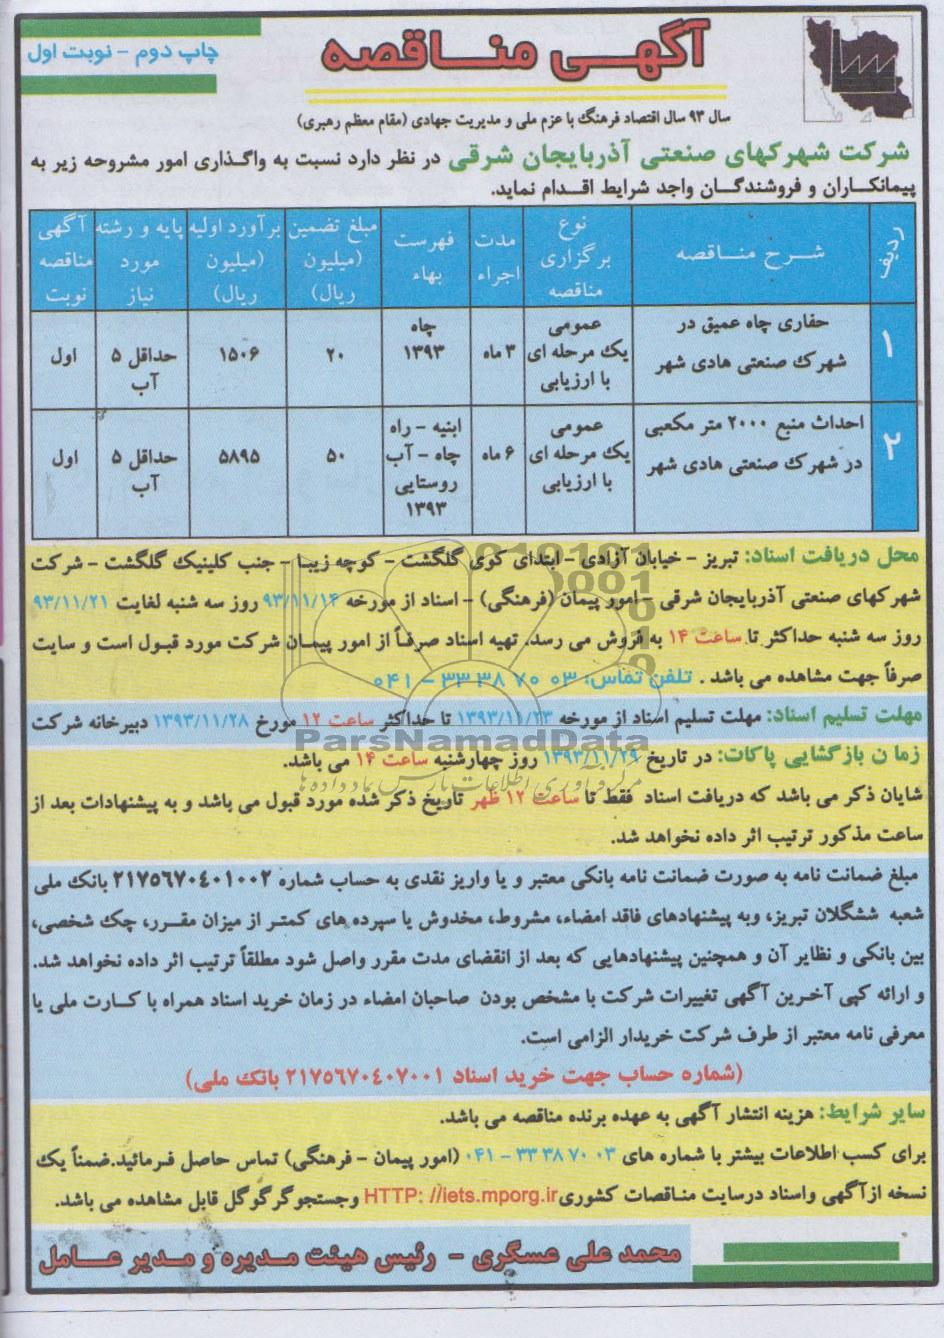 آگهی مناقصه
چاپ دوم - نوبت اول
سال ۹۳ سال اقتصاد فرهنگ با عزم ملی و مدیریت جهادی (مقام معظم رهبری)
شرکت شهرکهای صنعتی آذربایجان شرقی در نظر دارد نسبت به واگذاری امور مشروحه زیر به
پیمانکاران و فروشندگان واجد شرایط اقدام نماید.
ردیف | شرح مناقصه | نوع برگزاری مناقصه | مدت اجراء | فهرست بهاء | مبلغ تضمین (میلیون ریال) | برآورد اولیه (میلیون ریال) | پایه و رشته مورد نیاز | آگهی مناقصه نوبت
۱ | حفاری چاه عمیق در شهرک صنعتی هادی شهر | عمومی یک مرحله ای با ارزیابی | ۳ ماه | چاه ۱۳۹۳ | ۲۰ | ۱۵۰۶ | حداقل ۵ آب | اول
۲ | احداث منبع ۲۰۰۰ متر مکعبی در شهرک صنعتی هادی شهر | عمومی یک مرحله ای با ارزیابی | ۶ ماه | ابنیه - راه چاه - آب روستایی ۱۳۹۳ | ۵۰ | ۵۸۹۵ | حداقل ۵ آب | اول
محل دریافت اسناد: تبریز - خیابان آزادی - ابتدای کوی گلگشت - کوچه زیبا - جنب کلینیک گلگشت - شرکت
شهرکهای صنعتی آذربایجان شرقی - امور پیمان (فرهنگی) - اسناد از مورخه ۹۳/۱۱/۱۴ روز سه شنبه لغایت ۹۳/۱۱/۲۱
روز سه شنبه حداکثر تا ساعت ۱۴ به فروش می رسد. تهیه اسناد صرفاً از امور پیمان شرکت مورد قبول است و سایت
صرفاً جهت مشاهده می باشد . تلفن تماس: ۰۳ ۷۰ ۳۸ ۳۳ - ۰۴۱
مهلت تسلیم اسناد: مهلت تسلیم اسناد از مورخه ۱۳۹۳/۱۱/۲۳ تا حداکثر ساعت ۱۲ مورخ ۱۳۹۳/۱۱/۲۸ دبیرخانه شرکت
زمان بازگشایی پاکات: در تاریخ ۱۳۹۳/۱۱/۲۹ روز چهارشنبه ساعت ۱۴ می باشد.
شایان ذکر می باشد که دریافت اسناد فقط تا ساعت ۱۲ ظهر تاریخ ذکر شده مورد قبول می باشد و به پیشنهادات بعد از
ساعت مذکور ترتیب اثر داده نخواهد شد.
مبلغ ضمانت نامه به صورت ضمانت نامه بانکی معتبر و یا واریز نقدی به حساب شماره ۲۱۷۵۶۷۰۴۰۱۰۰۲ بانک ملی
شعبه ششگلان تبریز، وبه پیشنهادهای فاقد امضاء، مشروط، مخدوش یا سپرده های کمتر از میزان مقرر، چک شخصی،
بین بانکی و نظایر آن و همچنین پیشنهادهایی که بعد از انقضای مدت مقرر واصل شود مطلقاً ترتیب اثر داده نخواهد شد.
و ارائه کپی آخرین آگهی تغییرات شرکت با مشخص بودن صاحبان امضاء در زمان خرید اسناد همراه با کارت ملی یا
معرفی نامه معتبر از طرف شرکت خریدار الزامی است.
(شماره حساب جهت خرید اسناد ۲۱۷۵۶۷۰۴۰۷۰۰۱ بانک ملی)
سایر شرایط: هزینه انتشار آگهی به عهده برنده مناقصه می باشد.
برای کسب اطلاعات بیشتر با شماره های ۰۳ ۷۰ ۳۸ ۳۳ - ۰۴۱ (امور پیمان - فرهنگی) تماس حاصل فرمائید.ضمناً یک
نسخه ازآگهی واسناد درسایت مناقصات کشوری HTTP: //iets.mporg.ir وجستجوگرگوگل قابل مشاهده می باشد.
محمد علی عسگری - رئیس هیئت مدیره و مدیر عامل
ParsNamadData